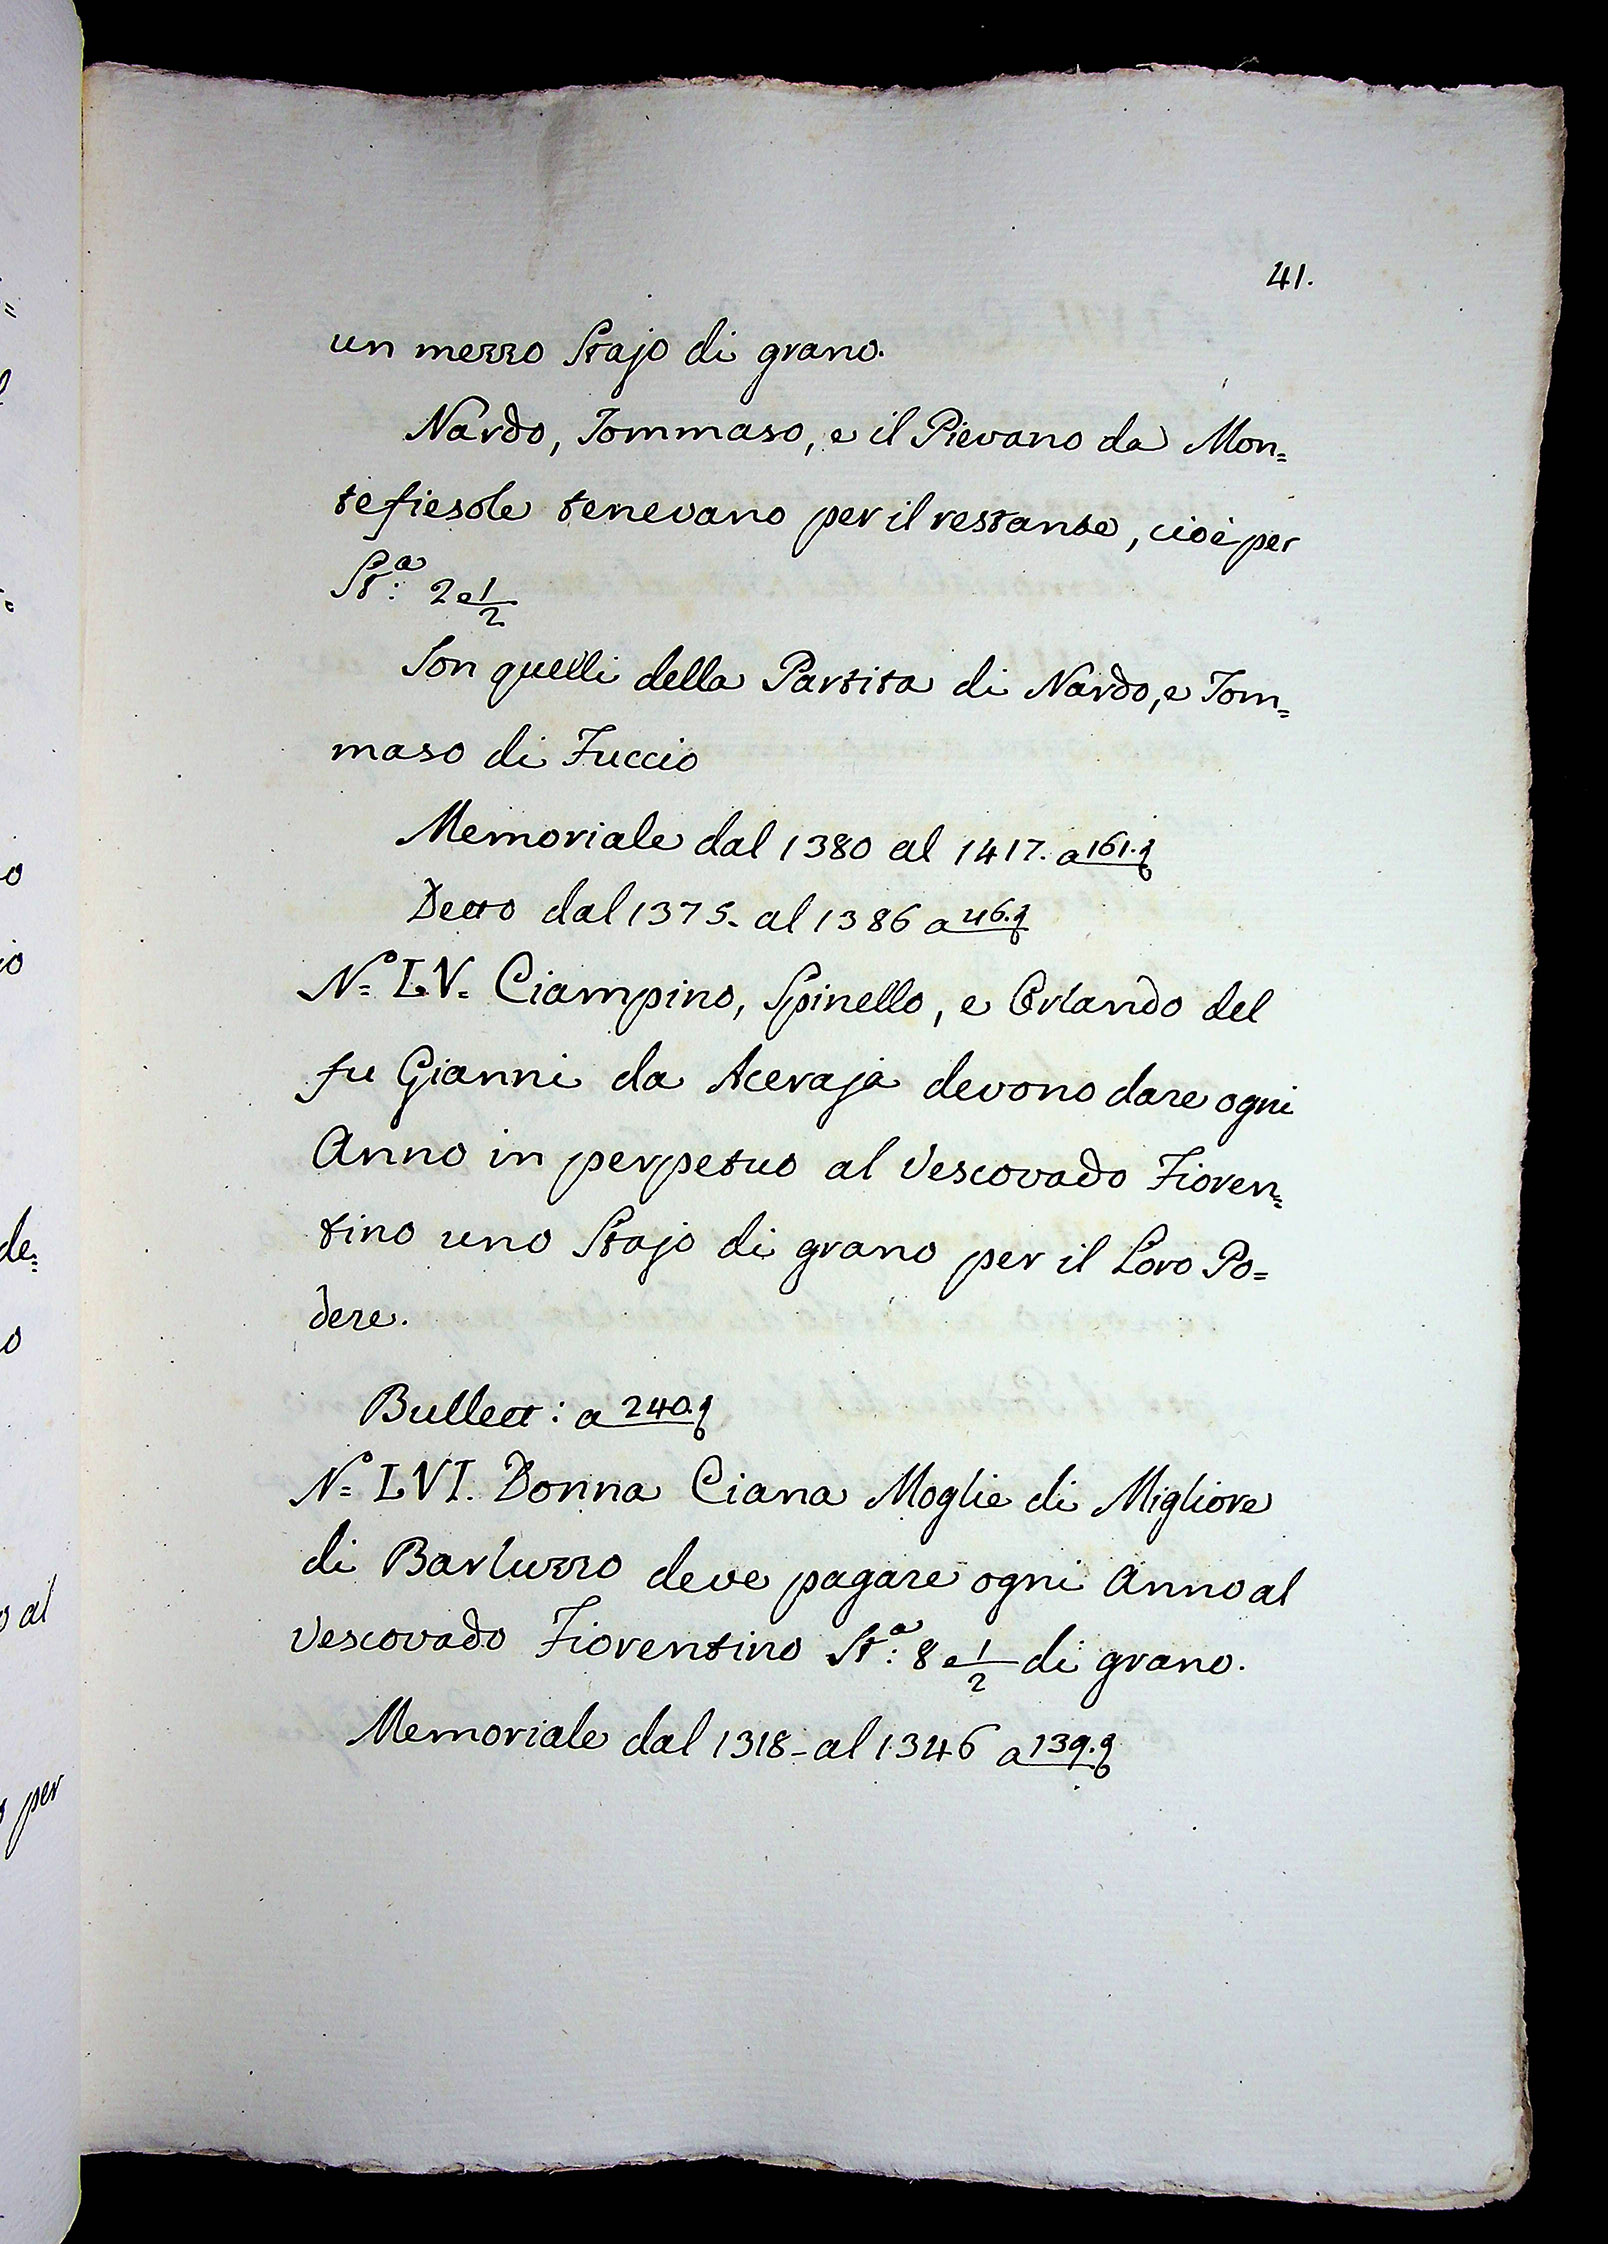 41.
un mezzo Stajo di grano.
Nardo, Tommaso, e il Pievano da Mon=
tefiesole tenevano per il restante, cioè per
St.ª: 2 e 1/2
Son quelli della Partita di Nardo, e Tom=
maso di Fuccio
Memoriale dal 1380 al 1417. a 161.
Detto dal 1375. al 1386 a 46.
N.º LV. Ciampino, Spinello, e Orlando del
fu Gianni da Aceraja devono dare ogni
Anno in perpetuo al Vescovado Fioren=
tino uno Stajo di grano per il Loro Po=
dere.
Bullett: a 240.
N.º LVI. Donna Ciana Moglie di Migliore
di Barluzzo deve pagare ogni Anno al
Vescovado Fiorentino St.ª: 8 e 1/2 di grano.
Memoriale dal 1318 - al 1346 a 139.
de=
o al
per